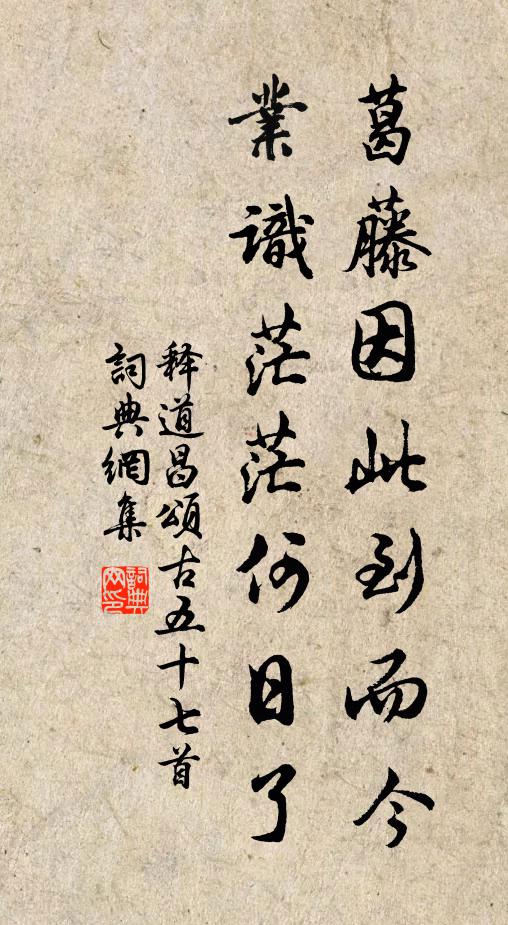 葛藤因此到而今
業識茫茫何日了
释道昌頌古五十七首
詞典網集
詞典网印